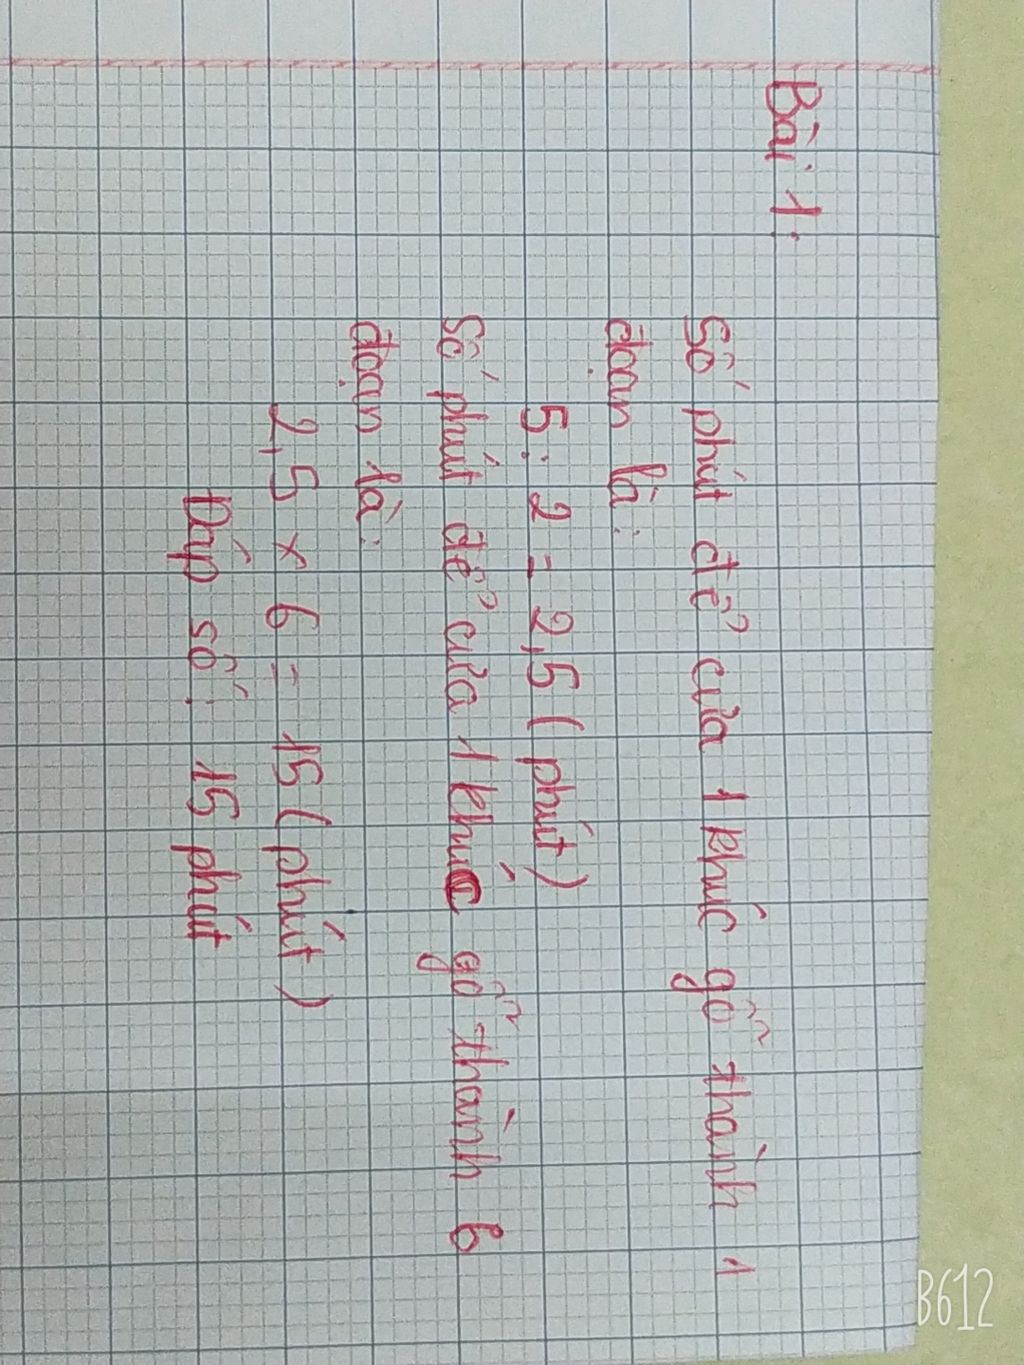 Bài 1:
Số phút để cưa 1 khúc gỗ thành 1
đoạn là:
5 : 2 = 2,5 ( phút )
Số phút để cưa 1 khúc gỗ thành 6
đoạn là:
2,5 × 6 = 15 ( phút )
Đáp số: 15 phút
B612